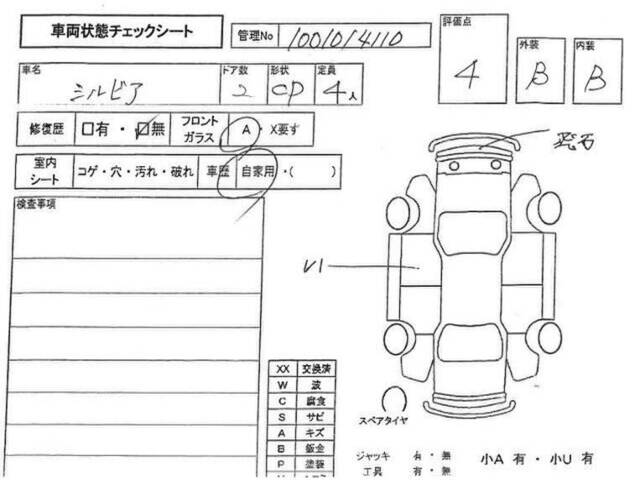 車両状態チェックシート
管理No 1001014110
評価点 4
外装 B
内装 B
車名 シルビア
ドア数 2
形状 CP
定員 4人
修復歴 □有・☑無
フロントガラス A・X要す
室内シート コゲ・穴・汚れ・破れ
車歴 自家用・( )
検査事項
飛石
XX 交換済
W 波
C 腐食
S サビ
A キズ
B 鈑金
P 塗装
スペアタイヤ
ジャッキ 有・無
工具 有・無
小A 有・小U 有